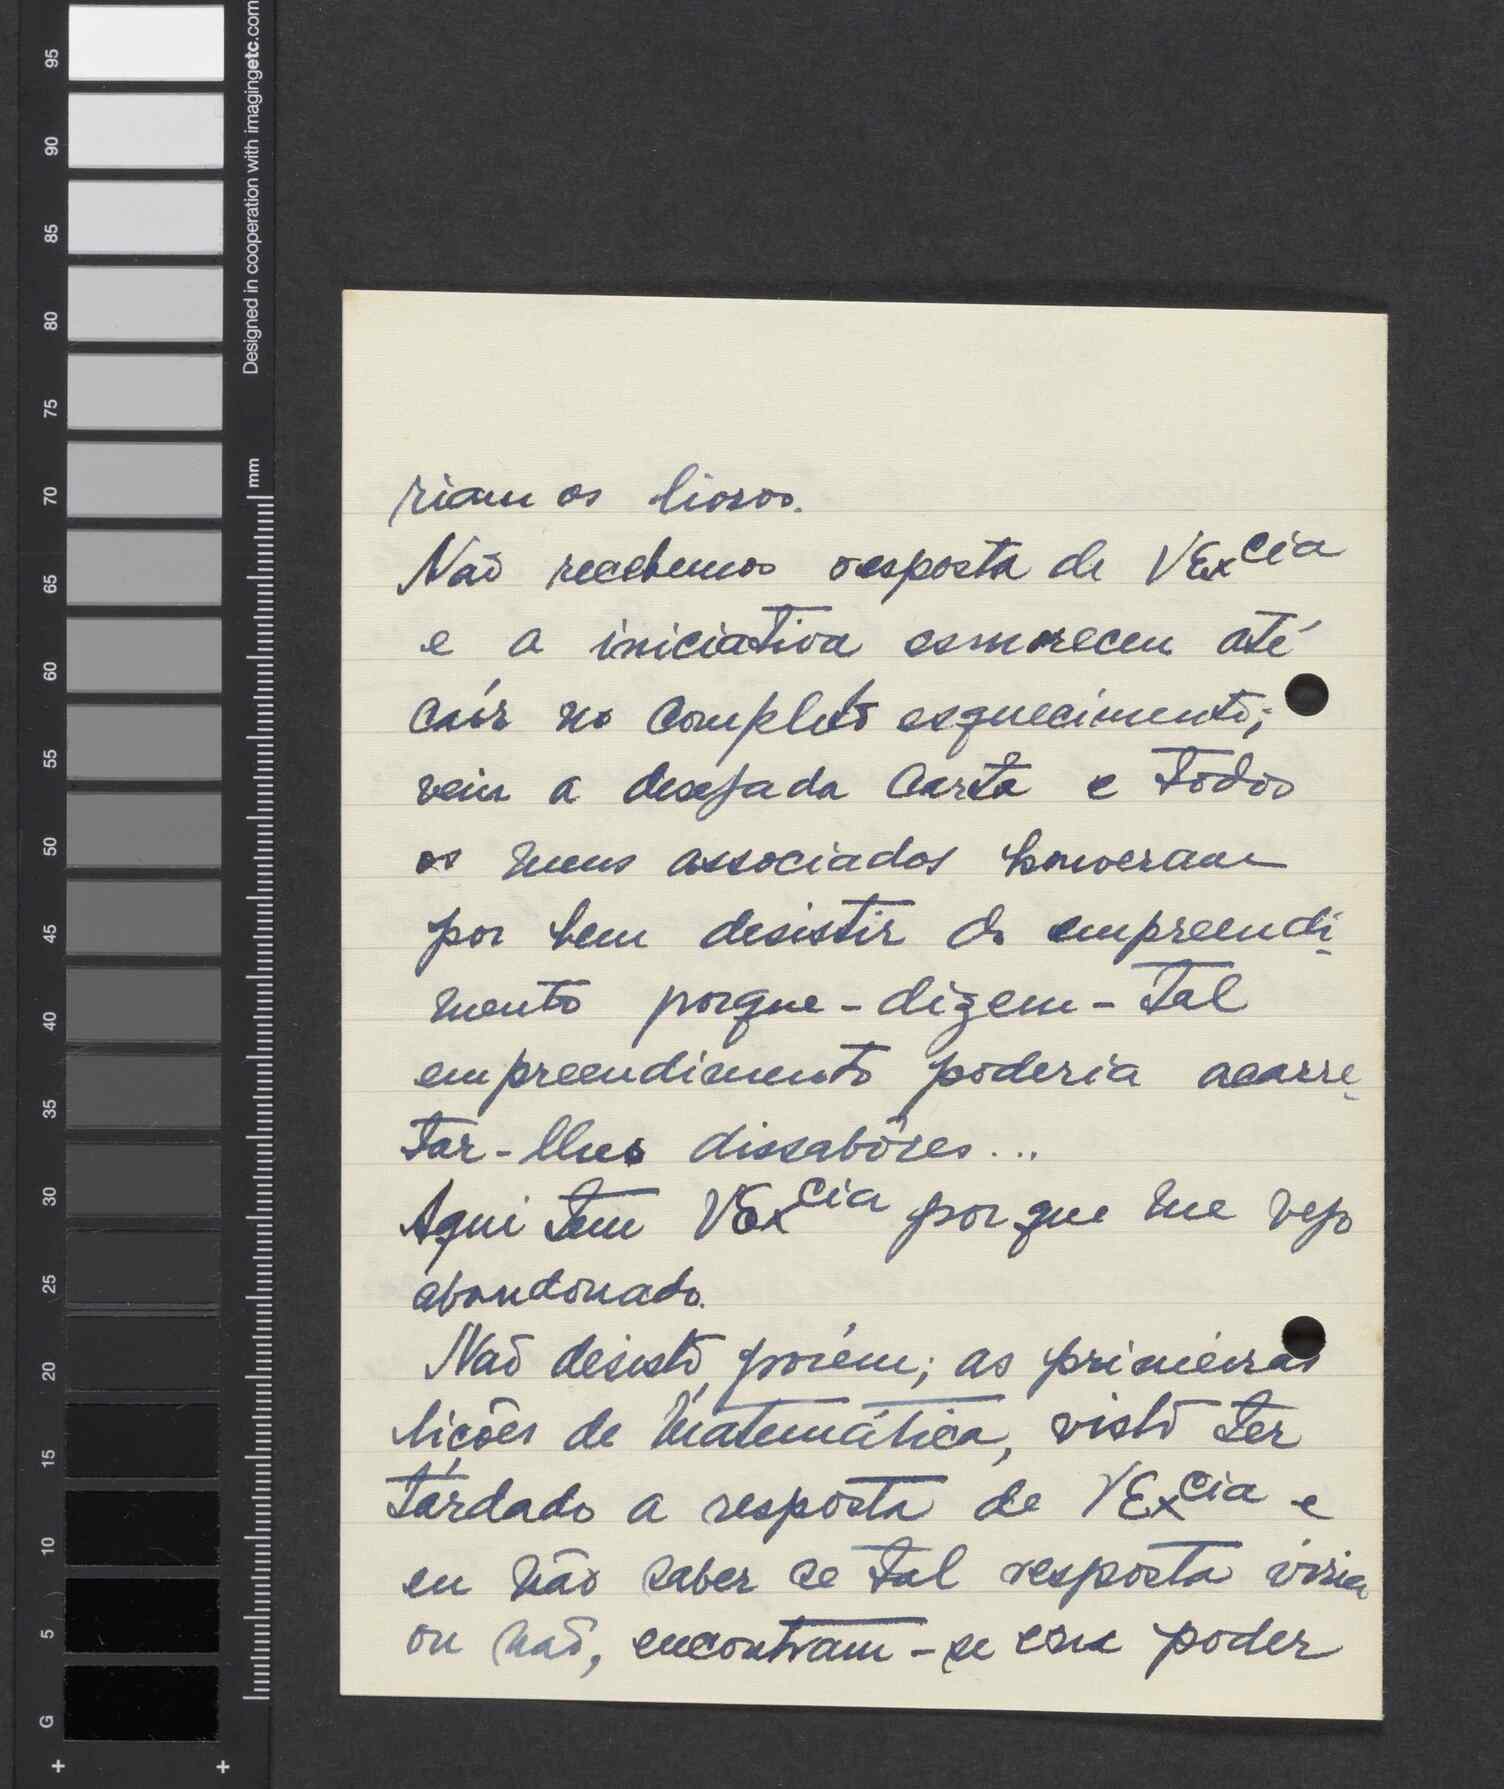 95
90
85
80
75
70
65
60
55
50
45
40
35
30
25
20
15
10
5
G
Designed in cooperation with imagingetc.com
mm
riam os livros.
Não recebemos resposta de VExcia
e a iniciativa esmoreceu até
caír no completo esquecimento;
veiu a desejada carta e todos
os meus associados houveram
por bem desistir do empreendi-
mento porque - dizem - tal
empreendimento poderia acarre-
tar-lhes dissabôres...
Aqui tem VExcia porque me vejo
abandonado.
Não desisto, porém; as primeiras
lições de Matemática, visto ter
tardado a resposta de VExcia e
eu não saber se tal resposta viria
ou não, encontram-se em poder